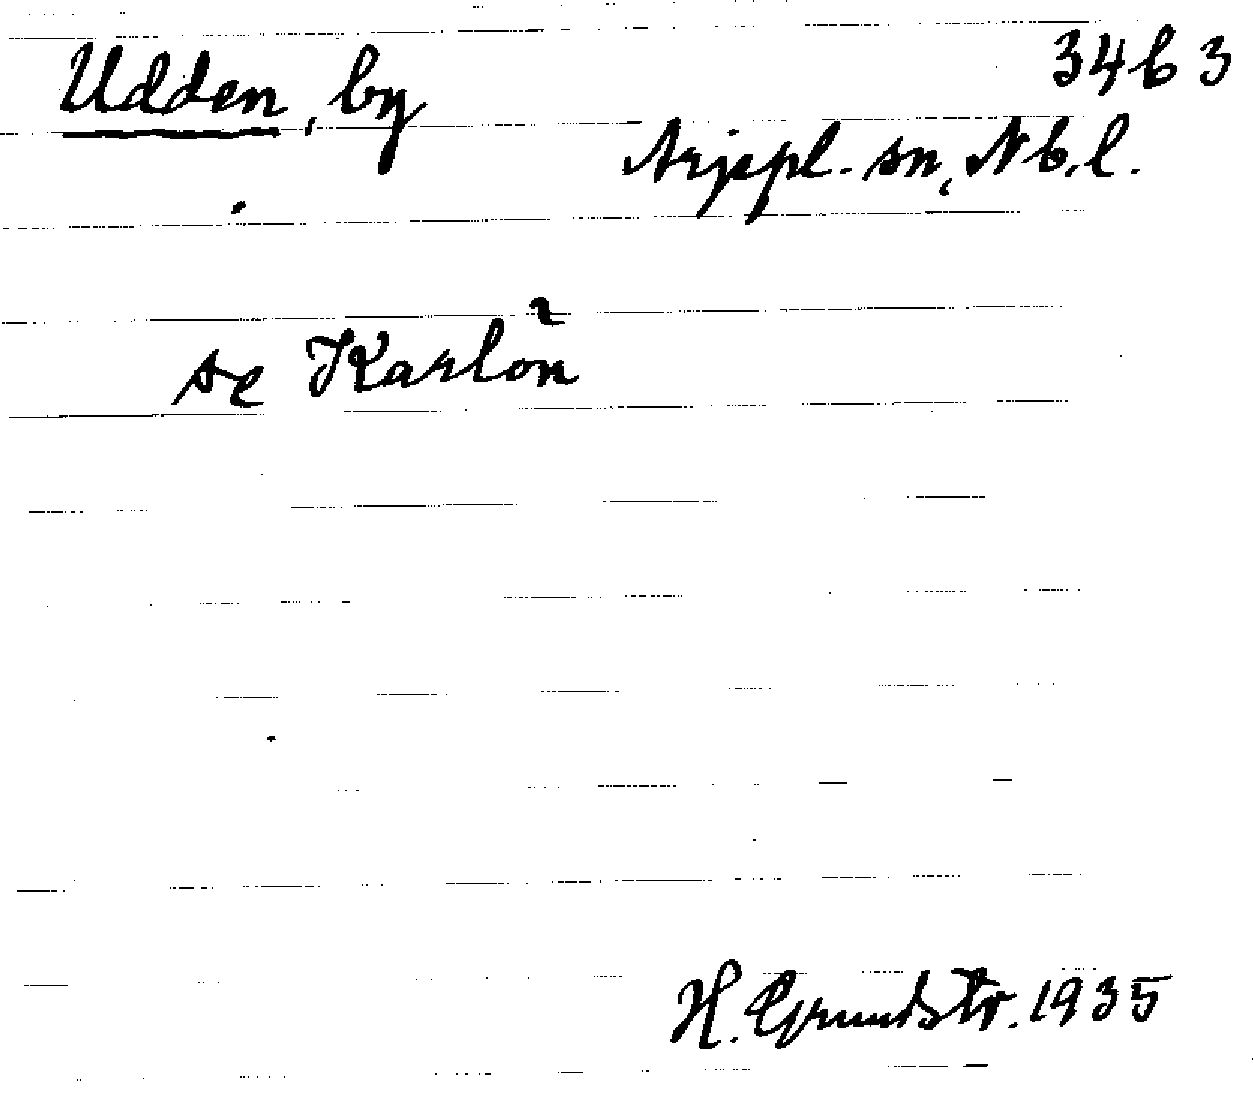 Udden, by
3463
Arjepl. sn, Nb.l.
se Karlön 2
H. Grundstr. 1935